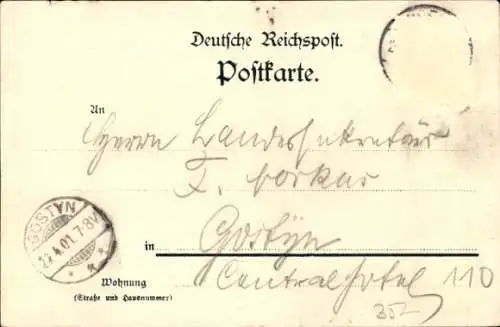 Deutsche Reichspost.
Postkarte.
An
Herrn Landessekretär
F.
in Gostyn
Centralhotel 110
Wohnung
(Straße und Hausnummer)
352
GOSTYN
4.01.7-8V